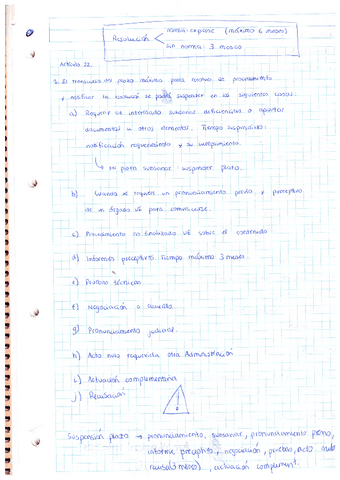 Resolución
norma: expresa (máximo 6 meses)
sin norma: 3 meses
Artículo 22.
1. El transcurso del plazo máximo para resolver un procedimiento
y notificar la resolución se podrá suspender en los siguientes casos:
a) Requerir al interesado subsanar deficiencias o aportar
documentos u otros elementos. Tiempo suspendido:
notificación requerimiento y su cumplimiento.
plazo subsanar: suspender plazo.
b) Cuando se requiere un pronunciamiento previo y preceptivo
de un órgano UE para
c) Procedimiento no finalizado UE sobre el contenido
d) Informes preceptivos. Tiempo máximo: 3 meses
e) Pruebas técnicas.
f) Negociación o acuerdo
g) Pronunciamiento judicial.
h) Acto nulo requerida otra Administración
i) Actuación complementaria
j) Recusación
Suspensión plazo → pronunciamiento, subsanar, pronunciamiento previo,
informe preceptivo, negociación, pruebas, acto nulo
, actuación complement.